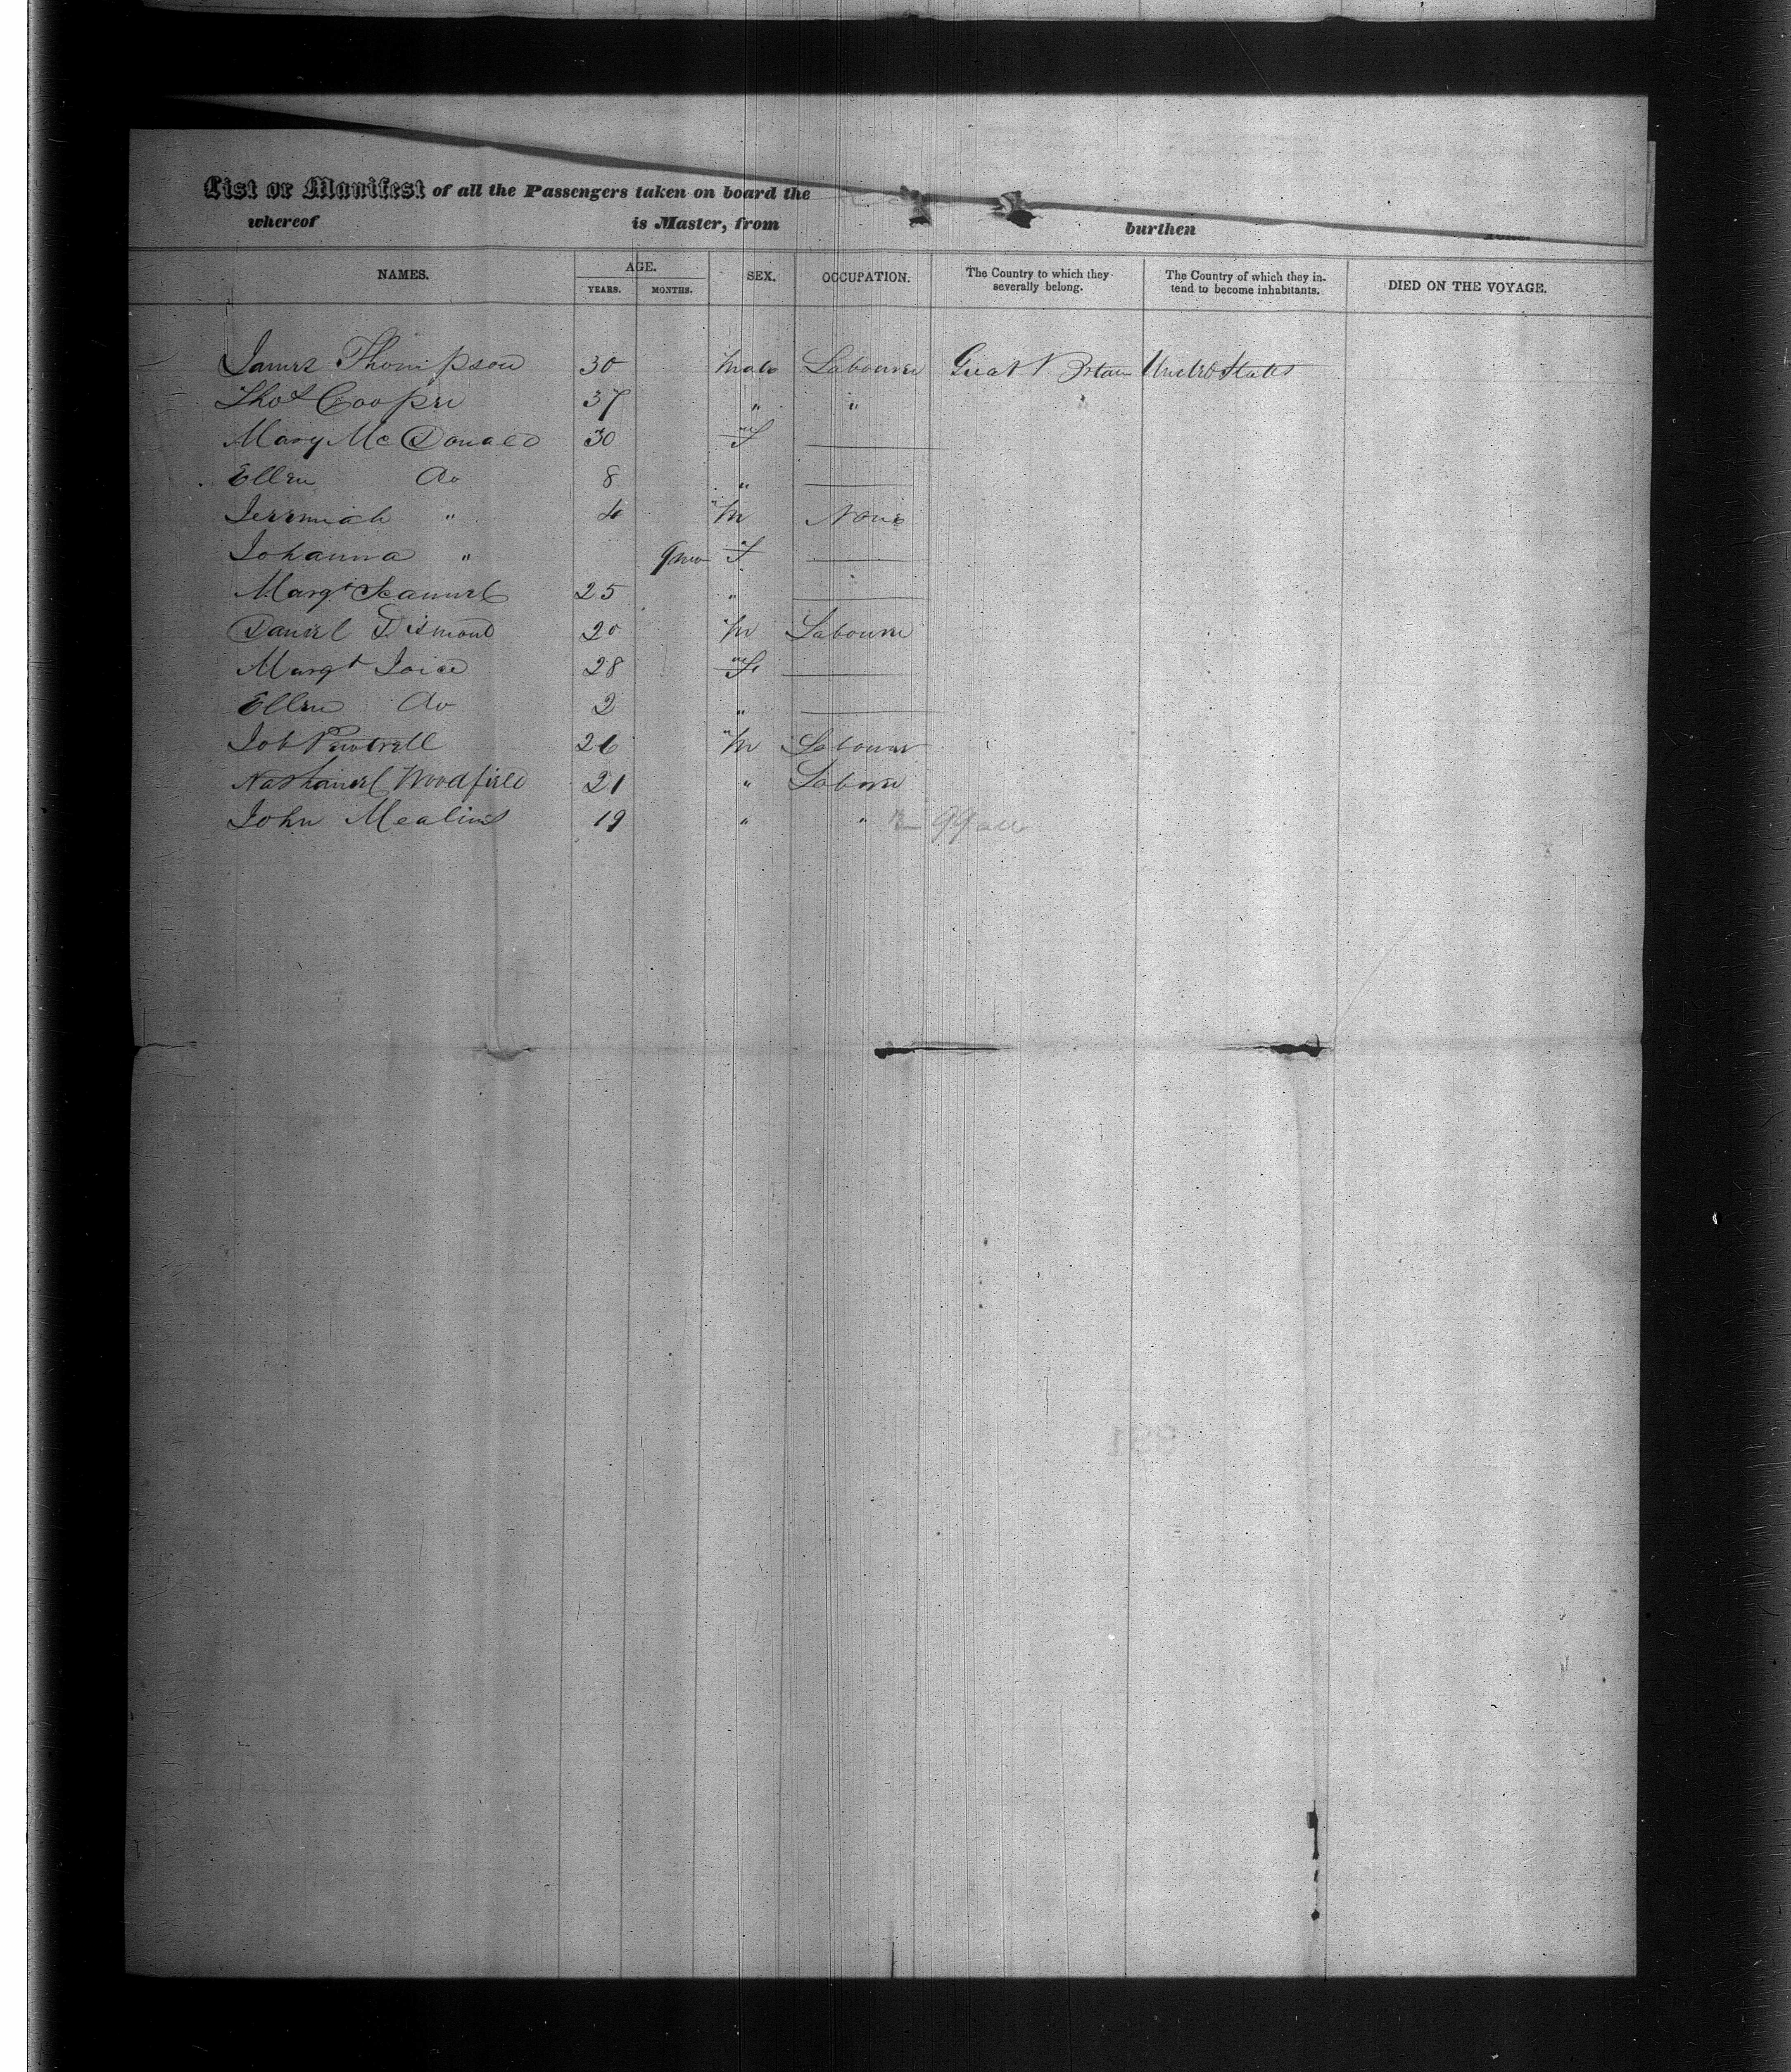 List or Manifest of all the Passengers taken on board the
whereof is Master, from burthen
NAMES. AGE. YEARS. MONTHS. SEX. OCCUPATION. The Country to which they severally belong. The Country of which they intend to become inhabitants. DIED ON THE VOYAGE.
James Thompson 30 Male Labourer Great Britain United States
Thos Cooper 37 " "
Mary McDonald 30 " F
Ellen Do 8 "
Jeremiah " 4 " M None
Johanna " 9 mo " F
Margt 25 "
Daniel Dismond 20 " M Labourer
Margt Joice 28 " F
Ellen Do 2 "
Job 26 " M Labourer
Nathaniel Woodfield 21 " Laborer
John Mealins 19 " " 99 all